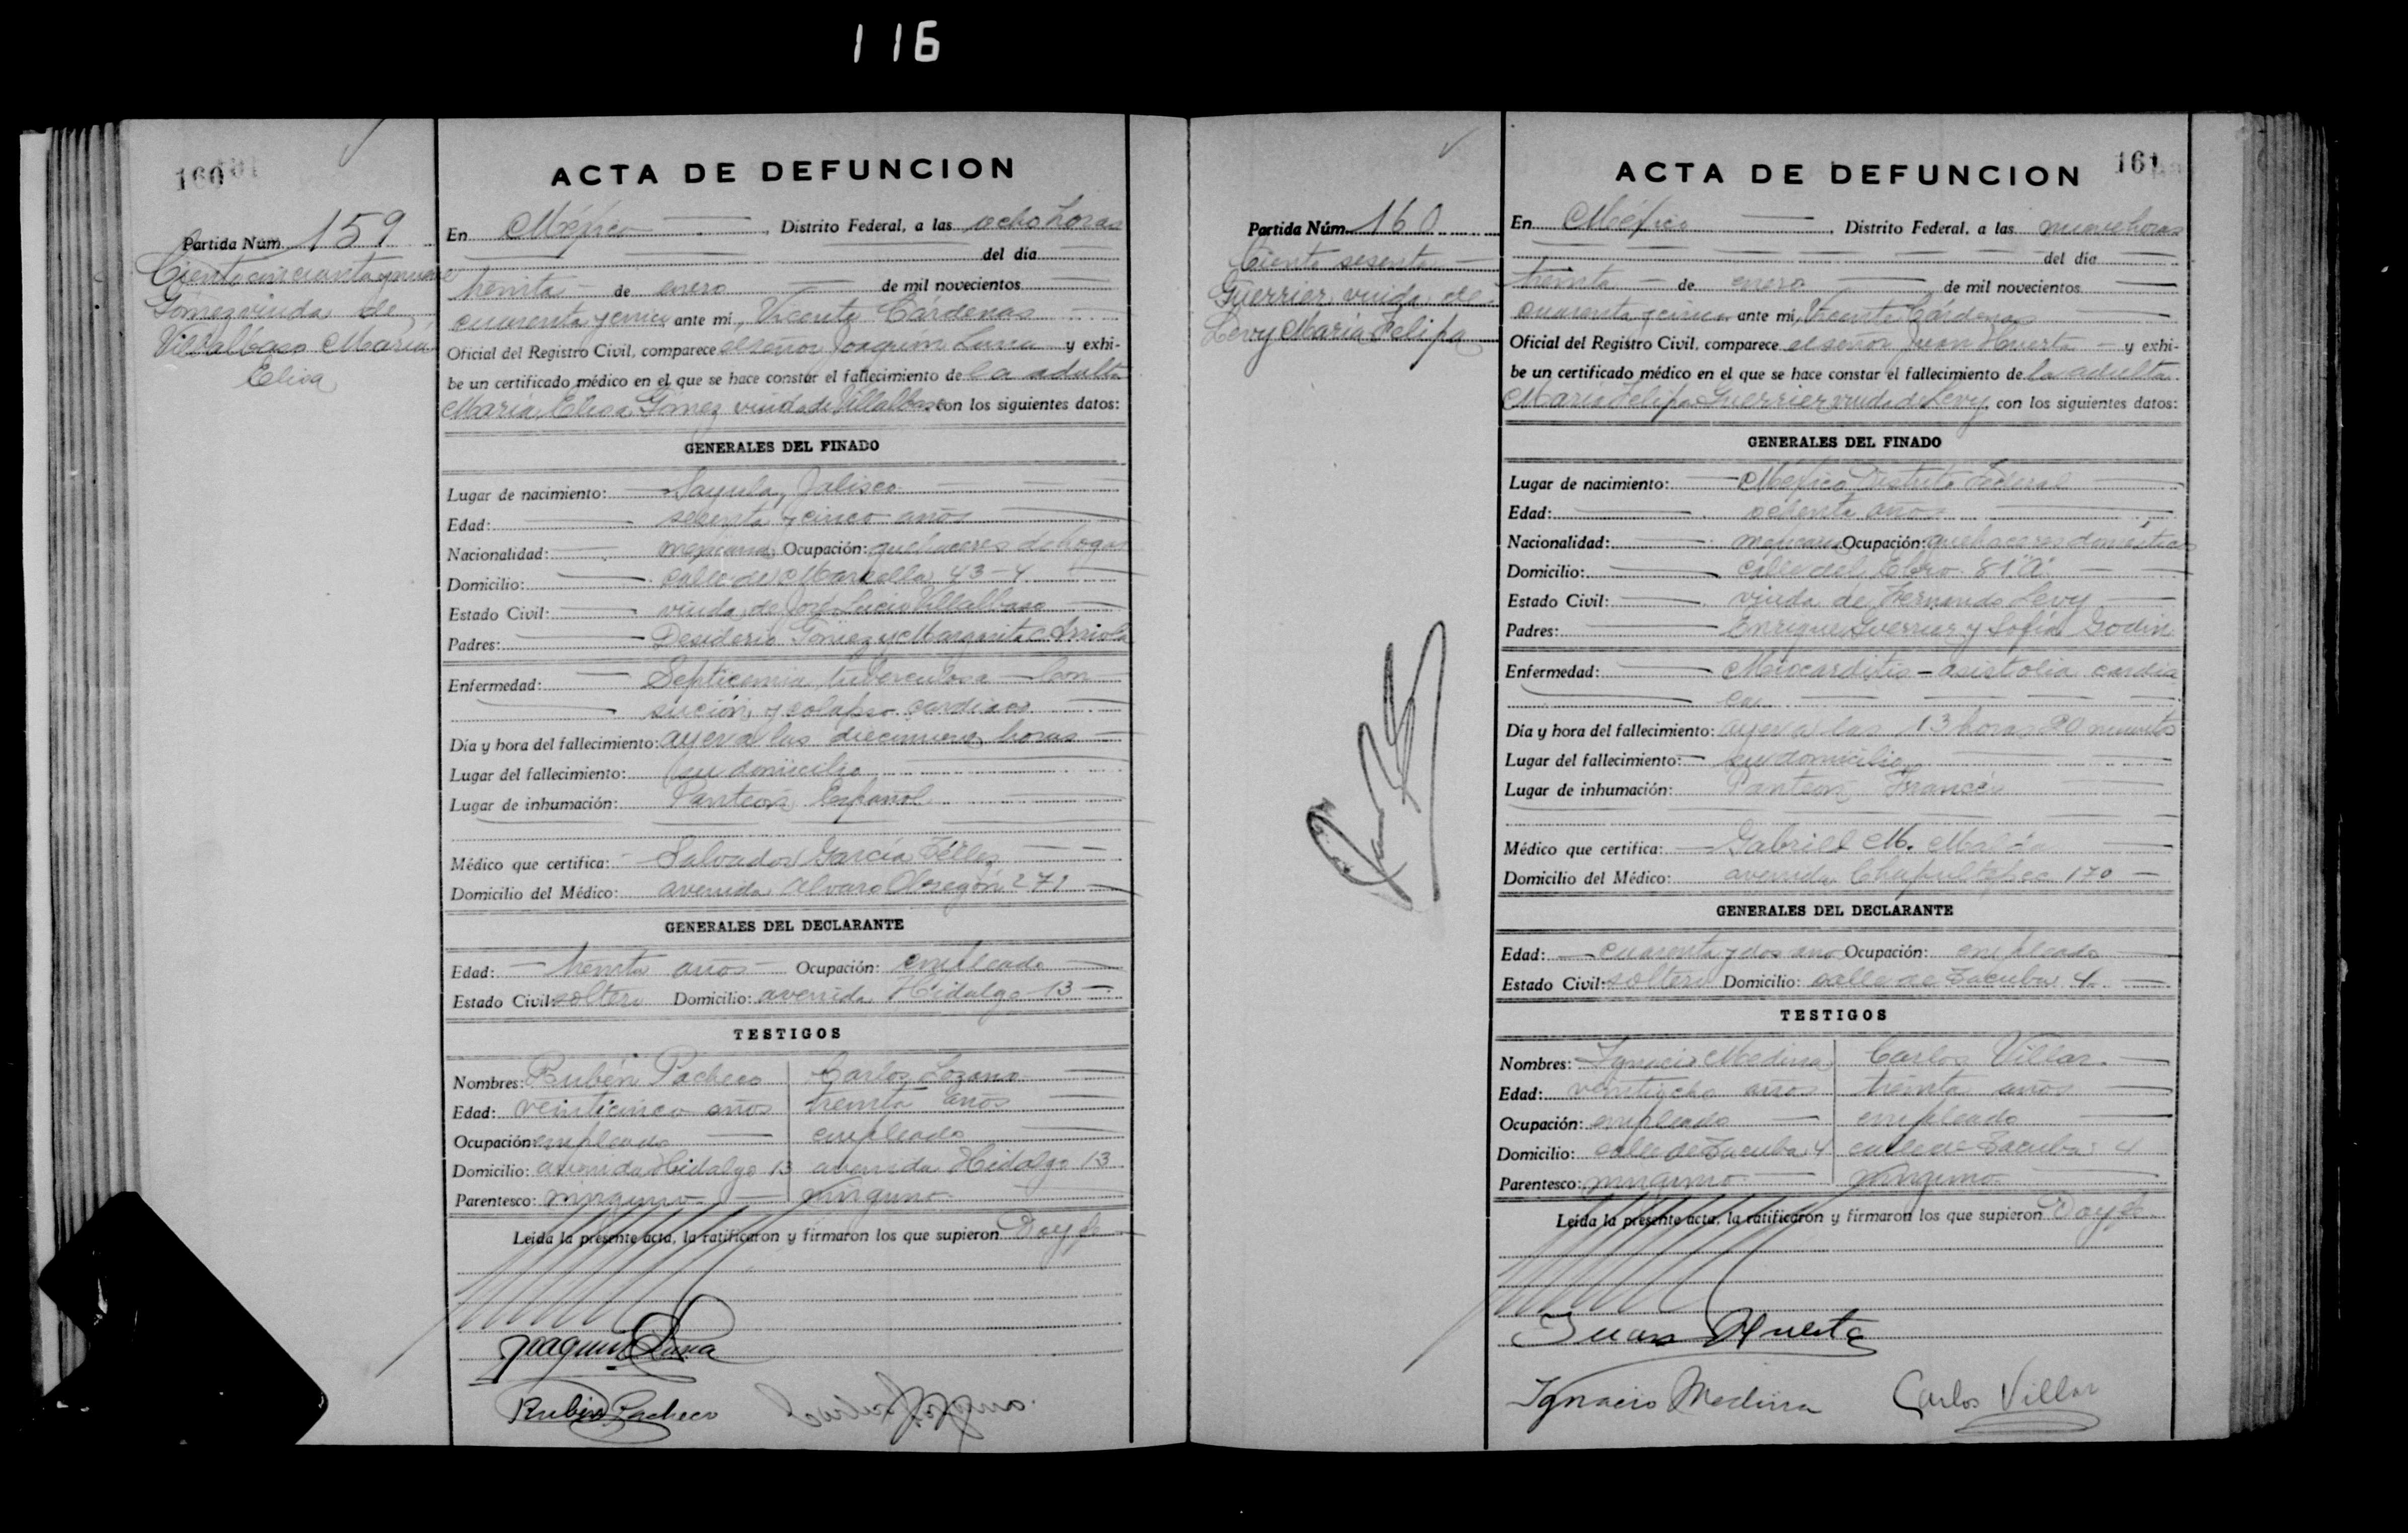 116
160
ACTA DE DEFUNCION
Partida Núm. 159
Ciento cincuenta y nueve
Gómez viuda de
Villalbaso María
Elisa
En México, Distrito Federal, a las ocho horas
del día
treinta de enero de mil novecientos
cuarenta y cinco, ante mí, Vicente Cárdenas
Oficial del Registro Civil, comparece el señor Joaquín Luna y exhi-
be un certificado médico en el que se hace constar el fallecimiento de la adulta
María Elisa Gómez viuda de Villalbaso con los siguientes datos:
GENERALES DEL FINADO
Lugar de nacimiento: Sayula, Jalisco
Edad: y cinco años
Nacionalidad: mexicana Ocupación: quehaceres de hogar
Domicilio: calle de Marsella 43-4
Estado Civil: viuda de José Lucio Villalbaso
Padres: Desiderio Gómez y Margarita Arriola
Enfermedad: Septicemia tuberculosa - Con
sunción y colapso cardiaco
Día y hora del fallecimiento: ayer a las diecinueve horas
Lugar del fallecimiento: su domicilio
Lugar de inhumación: Panteón Español
Médico que certifica: Salvador García Téllez
Domicilio del Médico: avenida Alvaro Obregón 271
GENERALES DEL DECLARANTE
Edad: treinta años Ocupación: empleado
Estado Civil: soltero Domicilio: avenida Hidalgo 13
TESTIGOS
Nombres: Rubén Pacheco Carlos Lozano
Edad: veinticinco años treinta años
Ocupación: empleado empleado
Domicilio: avenida Hidalgo 13 avenida Hidalgo 13
Parentesco: ninguno ninguno
Leída la presente acta, la ratificaron y firmaron los que supieron Doy fe
Joaquín Luna
Rubén Pacheco
161
ACTA DE DEFUNCION
Partida Núm. 160
Ciento sesenta
Guerrier viuda de
Levy María Felipa
En México, Distrito Federal, a las nueve horas
del día
treinta de enero de mil novecientos
cuarenta y cinco ante mí, Vicente Cárdenas
Oficial del Registro Civil, comparece el señor Juan Huerta y exhi-
be un certificado médico en el que se hace constar el fallecimiento de la adulta
María Felipa Guerrier viuda de Levy, con los siguientes datos:
GENERALES DEL FINADO
Lugar de nacimiento: México Distrito Federal
Edad: ochenta años
Nacionalidad: mexicana Ocupación: quehaceres domésticos
Domicilio: calle del Ebro 81 "A"
Estado Civil: viuda de Fernando Levy
Padres: Enrique Guerrier y Sofía Godin
Enfermedad: Miocarditis - asistolia cardia
ca
Día y hora del fallecimiento: ayer a las 13 horas 20 minutos
Lugar del fallecimiento: su domicilio
Lugar de inhumación: Panteón Francés
Médico que certifica: Gabriel M.
Domicilio del Médico: avenida Chapultepec 170
GENERALES DEL DECLARANTE
Edad: cuarenta y dos años Ocupación: empleado
Estado Civil: soltero Domicilio: calle de Tacuba 4
TESTIGOS
Nombres: Ignacio Medina Carlos Villar
Edad: veintiocho años treinta años
Ocupación: empleado empleado
Domicilio: calle de Tacuba 4 calle de Tacuba 4
Parentesco: ninguno ninguno
Leída la presente acta, la ratificaron y firmaron los que supieron Doy fe
Juan Huerta
Ignacio Medina Carlos Villar